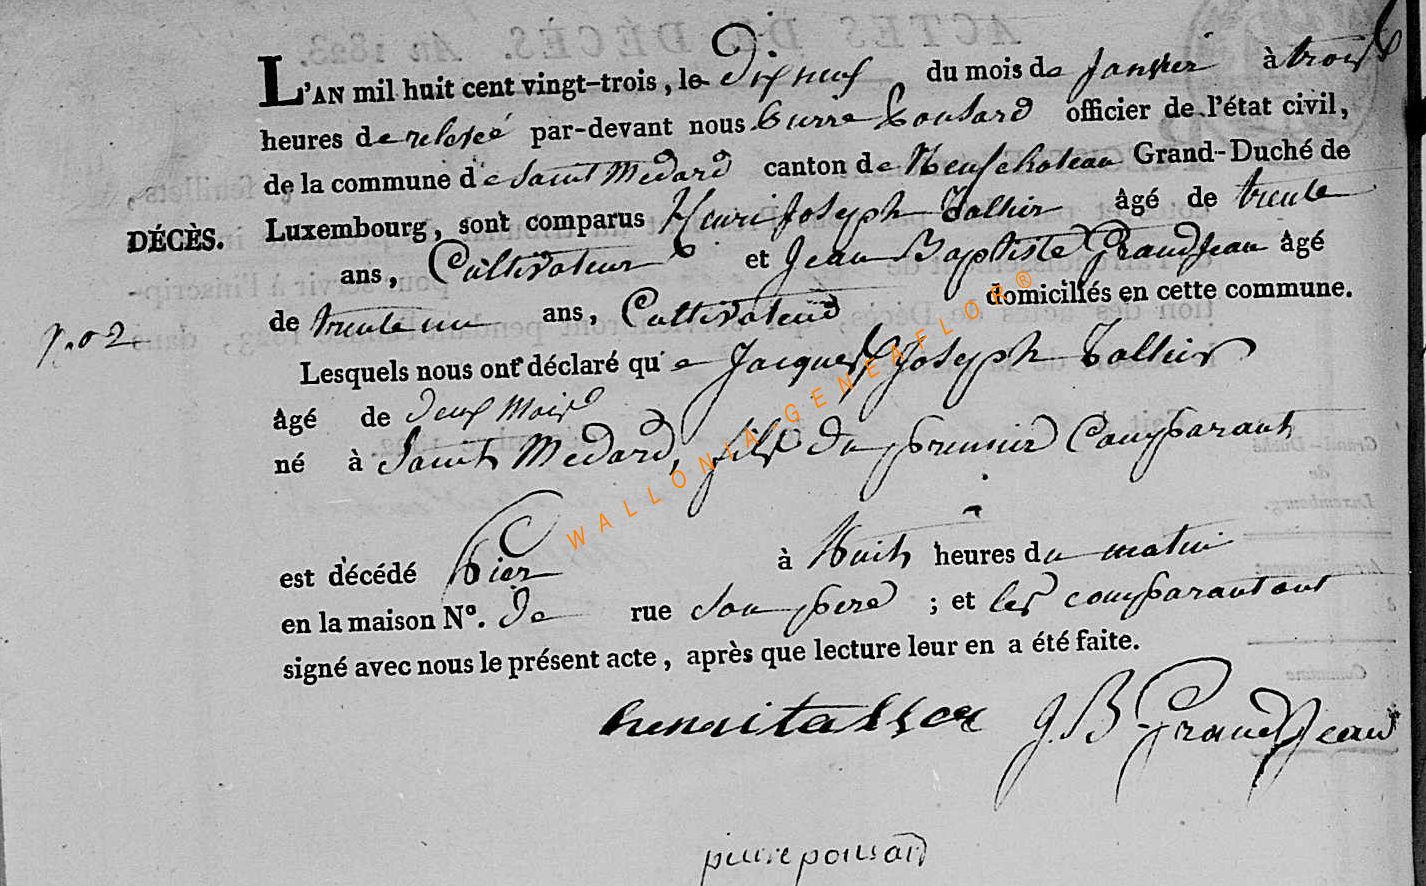 L'AN mil huit cent vingt-trois, le Dixneuf du mois de janvier à trois
heures de relevé par-devant nous Pierre Ponsard officier de l'état civil,
de la commune de Saint Medard canton de Neufchateau Grand-Duché de
DÉCÈS. Luxembourg, sont comparus Henri Joseph Tassier âgé de trente
ans, Cultivateur et Jean Baptiste Grandjean âgé
de trente un ans, Cultivateur domiciliés en cette commune.
N.o 2.
Lesquels nous ont déclaré que Jacques Joseph Tassier
âgé de deux mois
né à Saint Medard, fils du premier Comparant
est décédé hier à huit heures du matin
en la maison No. De rue son pere ; et les comparant ont
signé avec nous le présent acte, après que lecture leur en a été faite.
henri J. B. Grandjean
pierre ponsard
WALLONIA-GENEAFLOR®